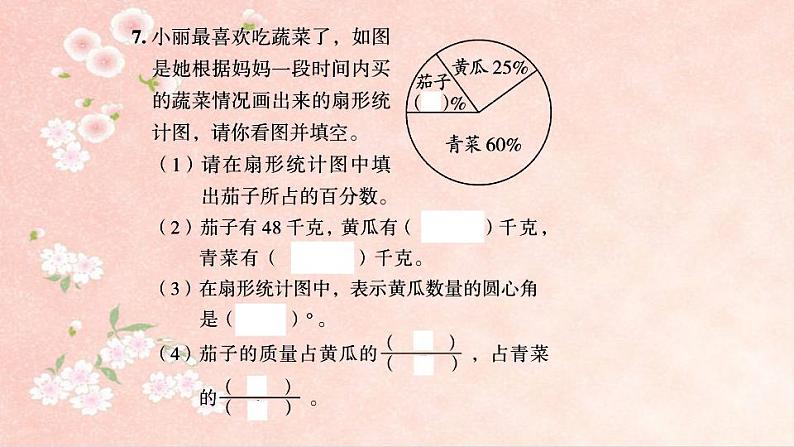 7. 小丽最喜欢吃蔬菜了，如图
是她根据妈妈一段时间内买
的蔬菜情况画出来的扇形统
计图，请你看图并填空。
茄子
(  )%
黄瓜 25%
青菜 60%
（1）请在扇形统计图中填
出茄子所占的百分数。
（2）茄子有 48 千克，黄瓜有（  ）千克，
青菜有（  ）千克。
（3）在扇形统计图中，表示黄瓜数量的圆心角
是（  ）°。
（4）茄子的质量占黄瓜的(  )/(  )，占青菜
的(  )/(  )。